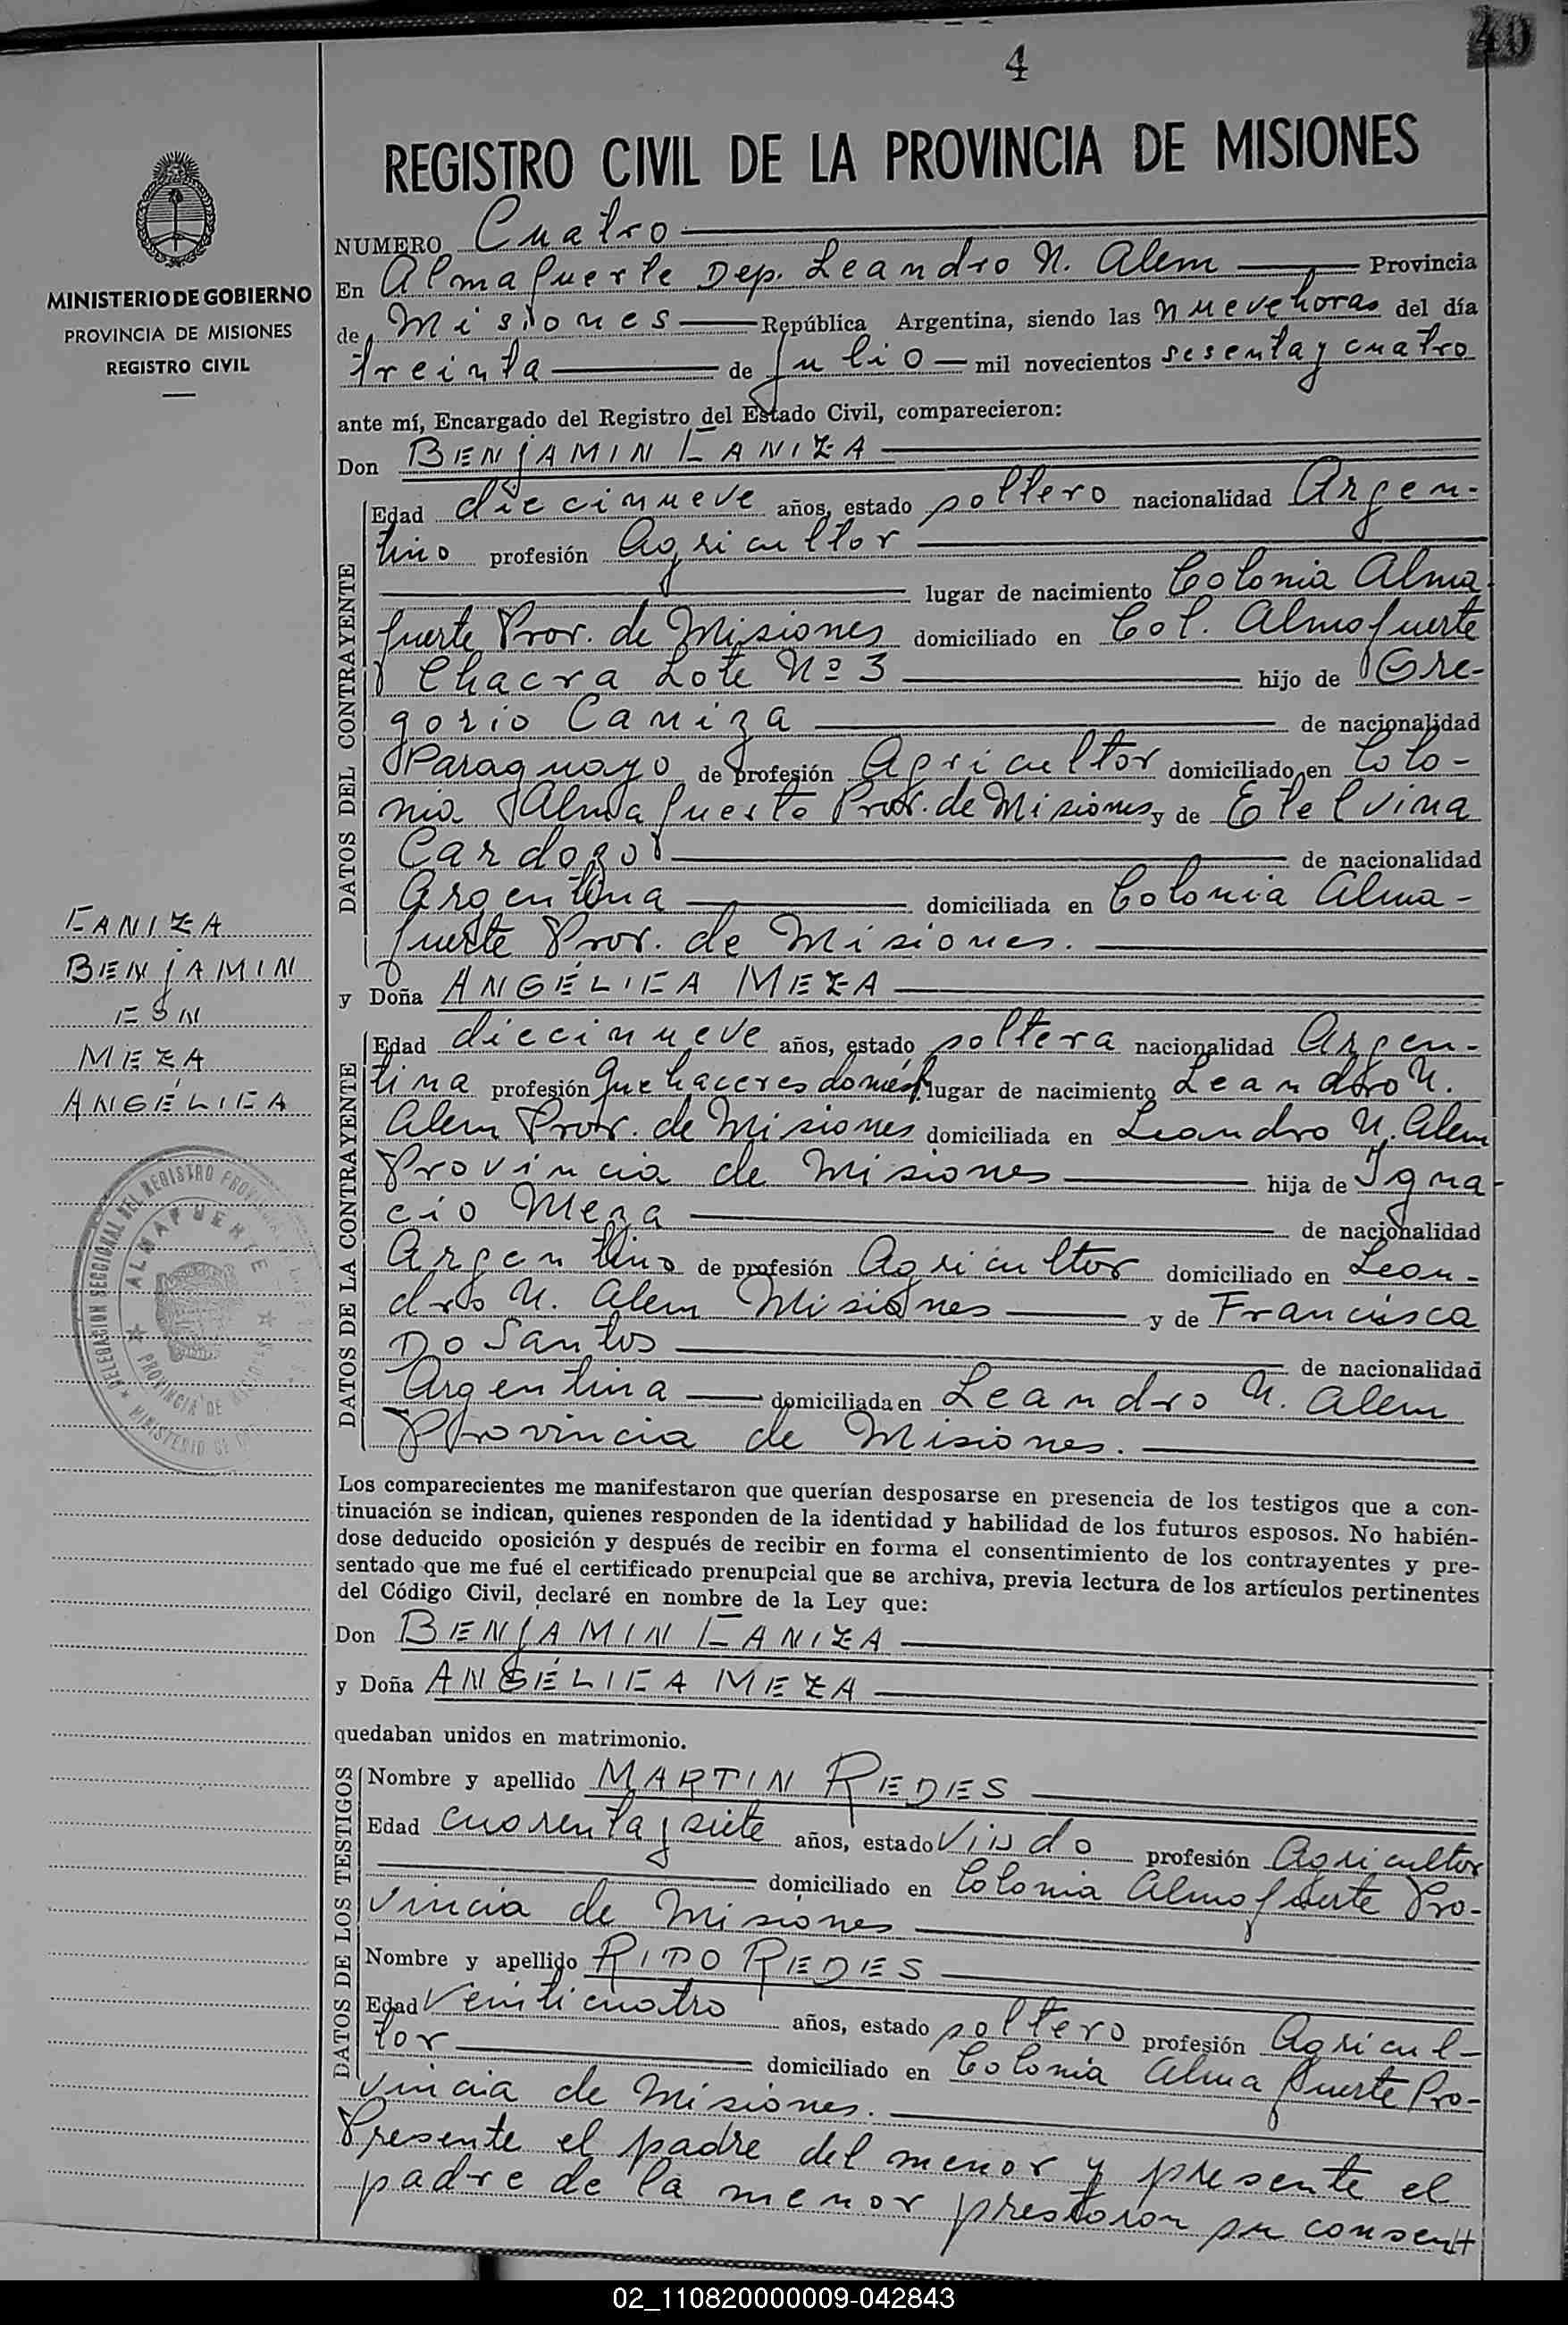 4
40
REGISTRO CIVIL DE LA PROVINCIA DE MISIONES
MINISTERIO DE GOBIERNO
PROVINCIA DE MISIONES
REGISTRO CIVIL
NUMERO Cuatro
En Almafuerte Dep. Leandro N. Alem Provincia
de Misiones República Argentina, siendo las nueve horas del día
treinta de Julio mil novecientos sesenta y cuatro
ante mí, Encargado del Registro del Estado Civil, comparecieron:
Don BENJAMIN CANIZA
DATOS DEL CONTRAYENTE
Edad diecinueve años, estado soltero nacionalidad Argen-
tino profesión Agricultor
lugar de nacimiento Colonia Alma
fuerte Prov. de Misiones domiciliado en Col. Almafuerte
Chacra Lote Nº 3 hijo de Gre-
gorio Caniza de nacionalidad
Paraguayo de profesión Agricultor domiciliado en Colo-
nia Almafuerte Prov. de Misiones y de Etelvina
Cardozo de nacionalidad
Argentina domiciliada en Colonia Alma-
fuerte Prov. de Misiones.
y Doña ANGÉLICA MEZA
CANIZA
BENJAMIN
CON
MEZA
ANGÉLICA
DATOS DE LA CONTRAYENTE
Edad diecinueve años, estado soltera nacionalidad Argen-
tina profesión Quehaceres domést. lugar de nacimiento Leandro N.
Alem Prov. de Misiones domiciliada en Leandro N. Alem
Provincia de Misiones hija de Igna-
cio Meza de nacionalidad
Argentino de profesión Agricultor domiciliado en Lean-
dro N. Alem Misiones y de Francisca
Do Santos de nacionalidad
Argentina domiciliada en Leandro N. Alem
Provincia de Misiones.
DELEGACION SECCIONAL DEL REGISTRO PROVINCIAL
ALMAFUERTE
PROVINCIA DE MISIONES
MINISTERIO DE
Los comparecientes me manifestaron que querían desposarse en presencia de los testigos que a con-
tinuación se indican, quienes responden de la identidad y habilidad de los futuros esposos. No habién-
dose deducido oposición y después de recibir en forma el consentimiento de los contrayentes y pre-
sentado que me fué el certificado prenupcial que se archiva, previa lectura de los artículos pertinentes
del Código Civil, declaré en nombre de la Ley que:
Don BENJAMIN CANIZA
y Doña ANGÉLICA MEZA
quedaban unidos en matrimonio.
DATOS DE LOS TESTIGOS
Nombre y apellido MARTIN REDES
Edad cuarenta y siete años, estado Viudo profesión Agricultor
domiciliado en Colonia Almafuerte Pro-
vincia de Misiones
Nombre y apellido RIDO REDES
Edad Veinticuatro años, estado soltero profesión Agricul-
tor domiciliado en Colonia Almafuerte Pro-
vincia de Misiones.
Presente el padre del menor y presente el
padre de la menor prestaron su consent
02_110820000009-042843